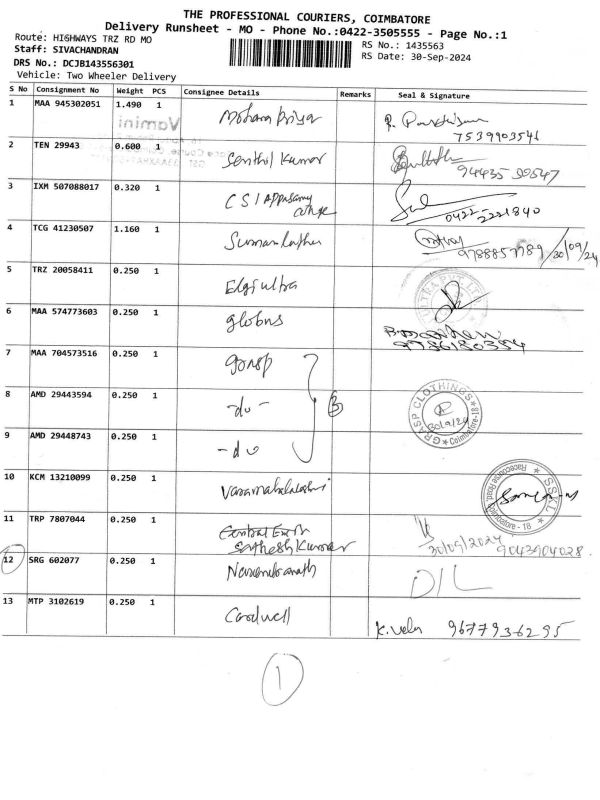 THE PROFESSIONAL COURIERS, COIMBATORE
Delivery Runsheet - MO - Phone No.:0422-3505555 - Page No.:1
Route: HIGHWAYS TRZ RD MO
RS No.: 1435563
Staff: SIVACHANDRAN
RS Date: 30-Sep-2024
DRS No.: DCJB143556301
Vehicle: Two Wheeler Delivery
S No Consignment No Weight PCS Consignee Details Remarks Seal & Signature
1 MAA 945302051 1.490 1 Mohana Priya
7539903541
2 TEN 29943 0.600 1 Senthil Kumar
3 IXM 507088017 0.320 1 CSI Appasamy
college
0422 2221840
4 TCG 41230507 1.160 1
9788857789/30/09/24
5 TRZ 20058411 0.250 1 Elgi ultra
ULTRA PVT LTD
6 MAA 574773603 0.250 1 globus
9786180354
7 MAA 704573516 0.250 1 grasp
8 AMD 29443594 0.250 1 -do- 3
GRASP CLOTHINGS
30/9/24
Coimbatore-18
9 AMD 29448743 0.250 1 -do
10 KCM 13210099 0.250 1 Varamahalakshmi
SSKL
Racecourse Road, Coimbatore - 18
11 TRP 7807044 0.250 1
Sathesh Kumar
30/09/2024 9043904028.
12 SRG 602077 0.250 1 Narendranath
DIL
13 MTP 3102619 0.250 1 Cardwell
K. Vela 9677936295
1